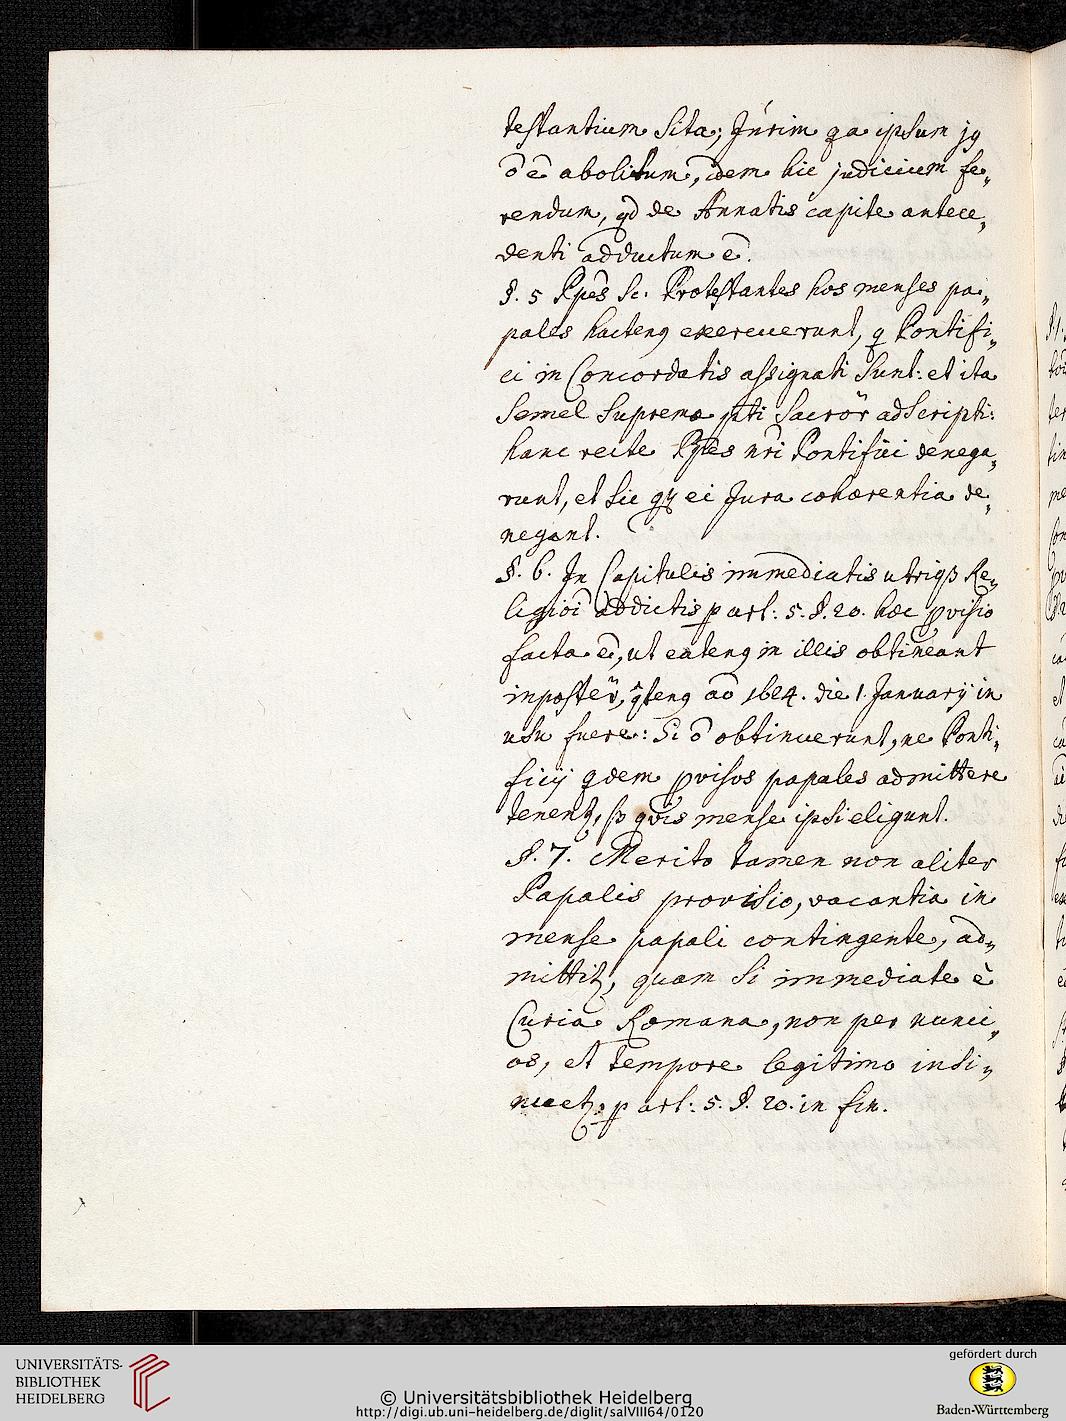 testantium sita; Jurim qa ipsum jq
õ ẽ abolitum, idem hic judicium fe„
rendum, qd de Annatis capite antece„
denti adductum ẽ.
§. 5 Ppes sc. Protestantes hos menses pa„
pales hacteng exercuerunt, q Pontifi„
ci in Concordatis assignati sunt: et ita
semel supremæ ptti sacror adscripti:
hanc recte Ppes nri Pontifici denega„
runt, et sic ei Jura cohærentia de„
negant.
§. 6. In Capitulis immediatis utriq Re„
ligioi addictis p art: 5. §. 20. hæc pvisio
facta ẽ, ut eateng in illis obtineant
imposter, qteng ao 1624. die 1. January in
usu fuere: Si õ obtinuerunt, ne Ponti„
ficij qdem pvisos papales admittere
tenent, quis mense ipsi eligunt.
§. 7. Merito tamen non aliter
Papalis provisio, vacantia in
mense papali contingente, ad„
mittit, quam si immediate è
Curia Romana, non per nunci„
os, et tempore legitimo insi„
nuet, p art: 5. §. 20. in fin.
UNIVERSITÄTS-
BIBLIOTHEK
HEIDELBERG
© Universitätsbibliothek Heidelberg
http://digi.ub.uni-heidelberg.de/diglit/salVIII64/0120
gefördert durch
Baden-Württemberg